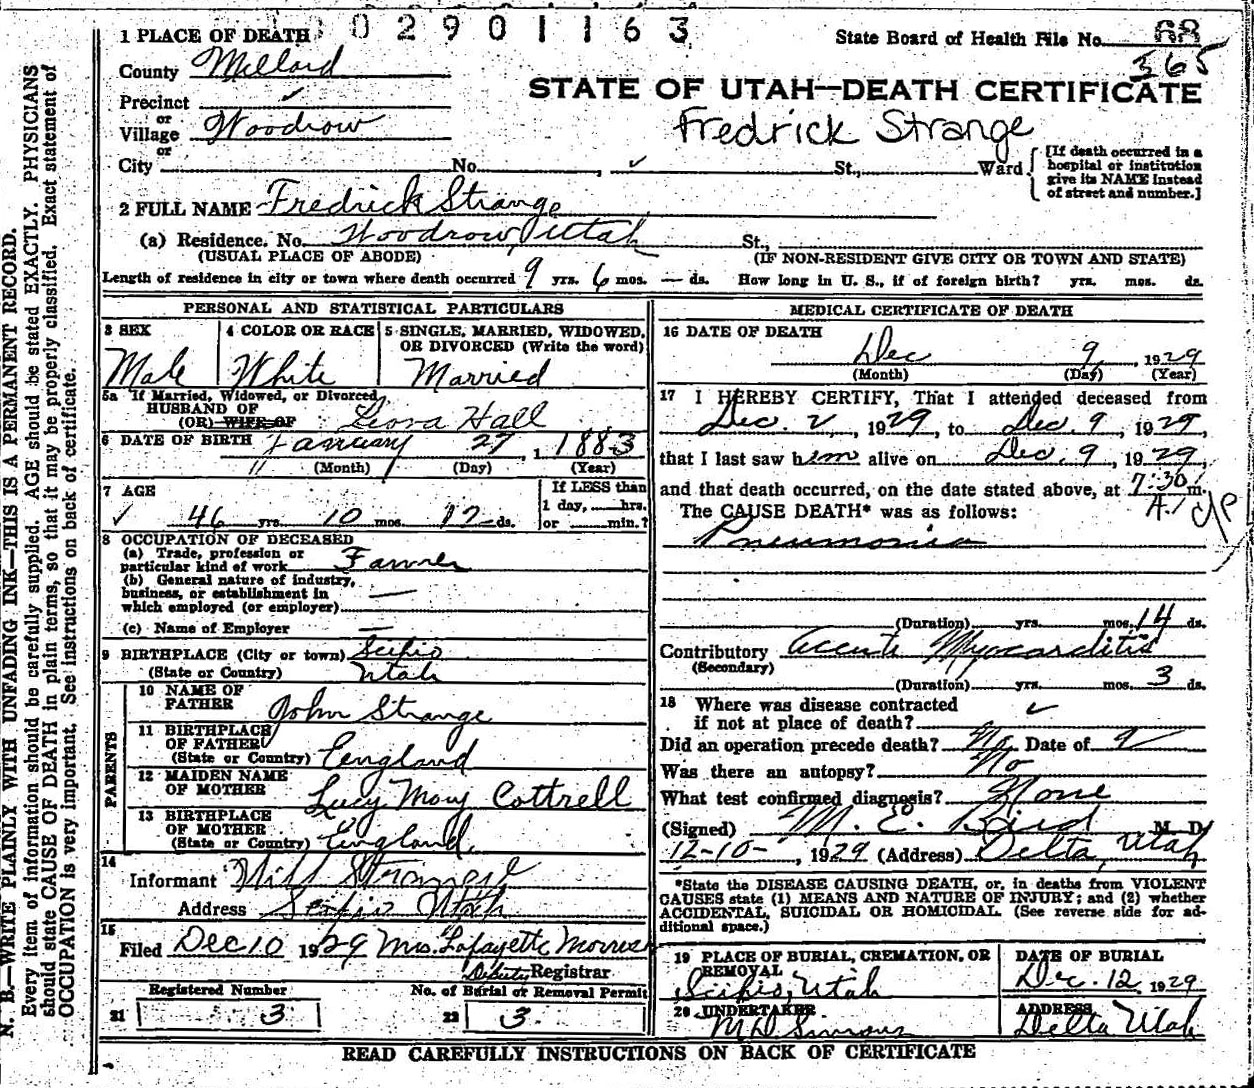 0 2 9 0 1 1 6 3
1 PLACE OF DEATH
State Board of Health File No. 68
365
County Millard
STATE OF UTAH—DEATH CERTIFICATE
Precinct ✓
or
Village Woodrow
Fredrick Strange
or
City No. , ✓ St., Ward
[If death occurred in a
hospital or institution
give its NAME instead
of street and number.]
2 FULL NAME Fredrick Strange
(a) Residence. No. Woodrow, Utah St.,
(USUAL PLACE OF ABODE) (IF NON-RESIDENT GIVE CITY OR TOWN AND STATE)
Length of residence in city or town where death occurred 9 yrs. 6 mos. — ds. How long in U. S., if of foreign birth? yrs. mos. ds.
PERSONAL AND STATISTICAL PARTICULARS
3 SEX
Male
4 COLOR OR RACE
White
5 SINGLE, MARRIED, WIDOWED,
OR DIVORCED (Write the word)
Married
5a If Married, Widowed, or Divorced
HUSBAND OF
(OR) WIFE OF Leora Hall
6 DATE OF BIRTH January 27, 1883
(Month) (Day) (Year)
7 AGE
✓ 46 yrs. 10 mos. 12 ds.
If LESS than
1 day, hrs.
or min.?
8 OCCUPATION OF DECEASED
(a) Trade, profession or
particular kind of work Farmer
(b) General nature of industry,
business, or establishment in
which employed (or employer) —
(c) Name of Employer —
9 BIRTHPLACE (City or town) Scipio
(State or Country) Utah
PARENTS
10 NAME OF
FATHER John Strange
11 BIRTHPLACE
OF FATHER
(State or Country) England
12 MAIDEN NAME
OF MOTHER Lucy Mary Cottrell
13 BIRTHPLACE
OF MOTHER
(State or Country) England
14
Informant Will Strange
Address Scipio Utah
15
Filed Dec 10 1929 Mrs. Lafayette Morris
Deputy Registrar
Registered Number
21 3
No. of Burial or Removal Permit
22 3.
MEDICAL CERTIFICATE OF DEATH
16 DATE OF DEATH
Dec 9, 1929
(Month) (Day) (Year)
17 I HEREBY CERTIFY, That I attended deceased from
Dec. 2, 1929, to Dec. 9, 1929,
that I last saw him alive on Dec. 9, 1929,
and that death occurred, on the date stated above, at 7:30 m.
A.
The CAUSE DEATH* was as follows:
Pneumonia
(Duration) yrs. mos. 14 ds.
Contributory Accute Myocarditis
(Secondary)
(Duration) yrs. mos. 3 ds.
18 Where was disease contracted
if not at place of death? ✓
Did an operation precede death? No Date of
Was there an autopsy? No
What test confirmed diagnosis? None
(Signed) M. E. Bird M. D.
12-10-, 1929 (Address) Delta, Utah
*State the DISEASE CAUSING DEATH, or, in deaths from VIOLENT
CAUSES state (1) MEANS AND NATURE OF INJURY; and (2) whether
ACCIDENTAL, SUICIDAL OR HOMICIDAL. (See reverse side for ad-
ditional space.)
19 PLACE OF BURIAL, CREMATION, OR
REMOVAL
Scipio, Utah
DATE OF BURIAL
Dec. 12, 1929
20 UNDERTAKER
ADDRESS
Delta Utah
READ CAREFULLY INSTRUCTIONS ON BACK OF CERTIFICATE
N. B.—WRITE PLAINLY WITH UNFADING INK—THIS IS A PERMANENT RECORD.
Every item of information should be carefully supplied. AGE should be stated EXACTLY. PHYSICIANS
should state CAUSE OF DEATH in plain terms, so that it may be properly classified. Exact statement of
OCCUPATION is very important. See instructions on back of certificate.